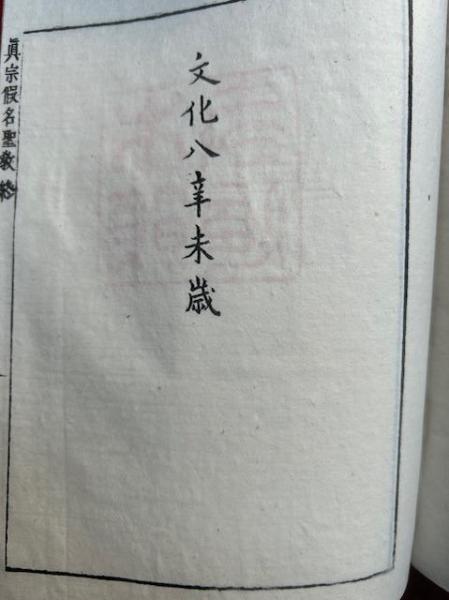 文化八辛未歳
眞宗假名聖教終